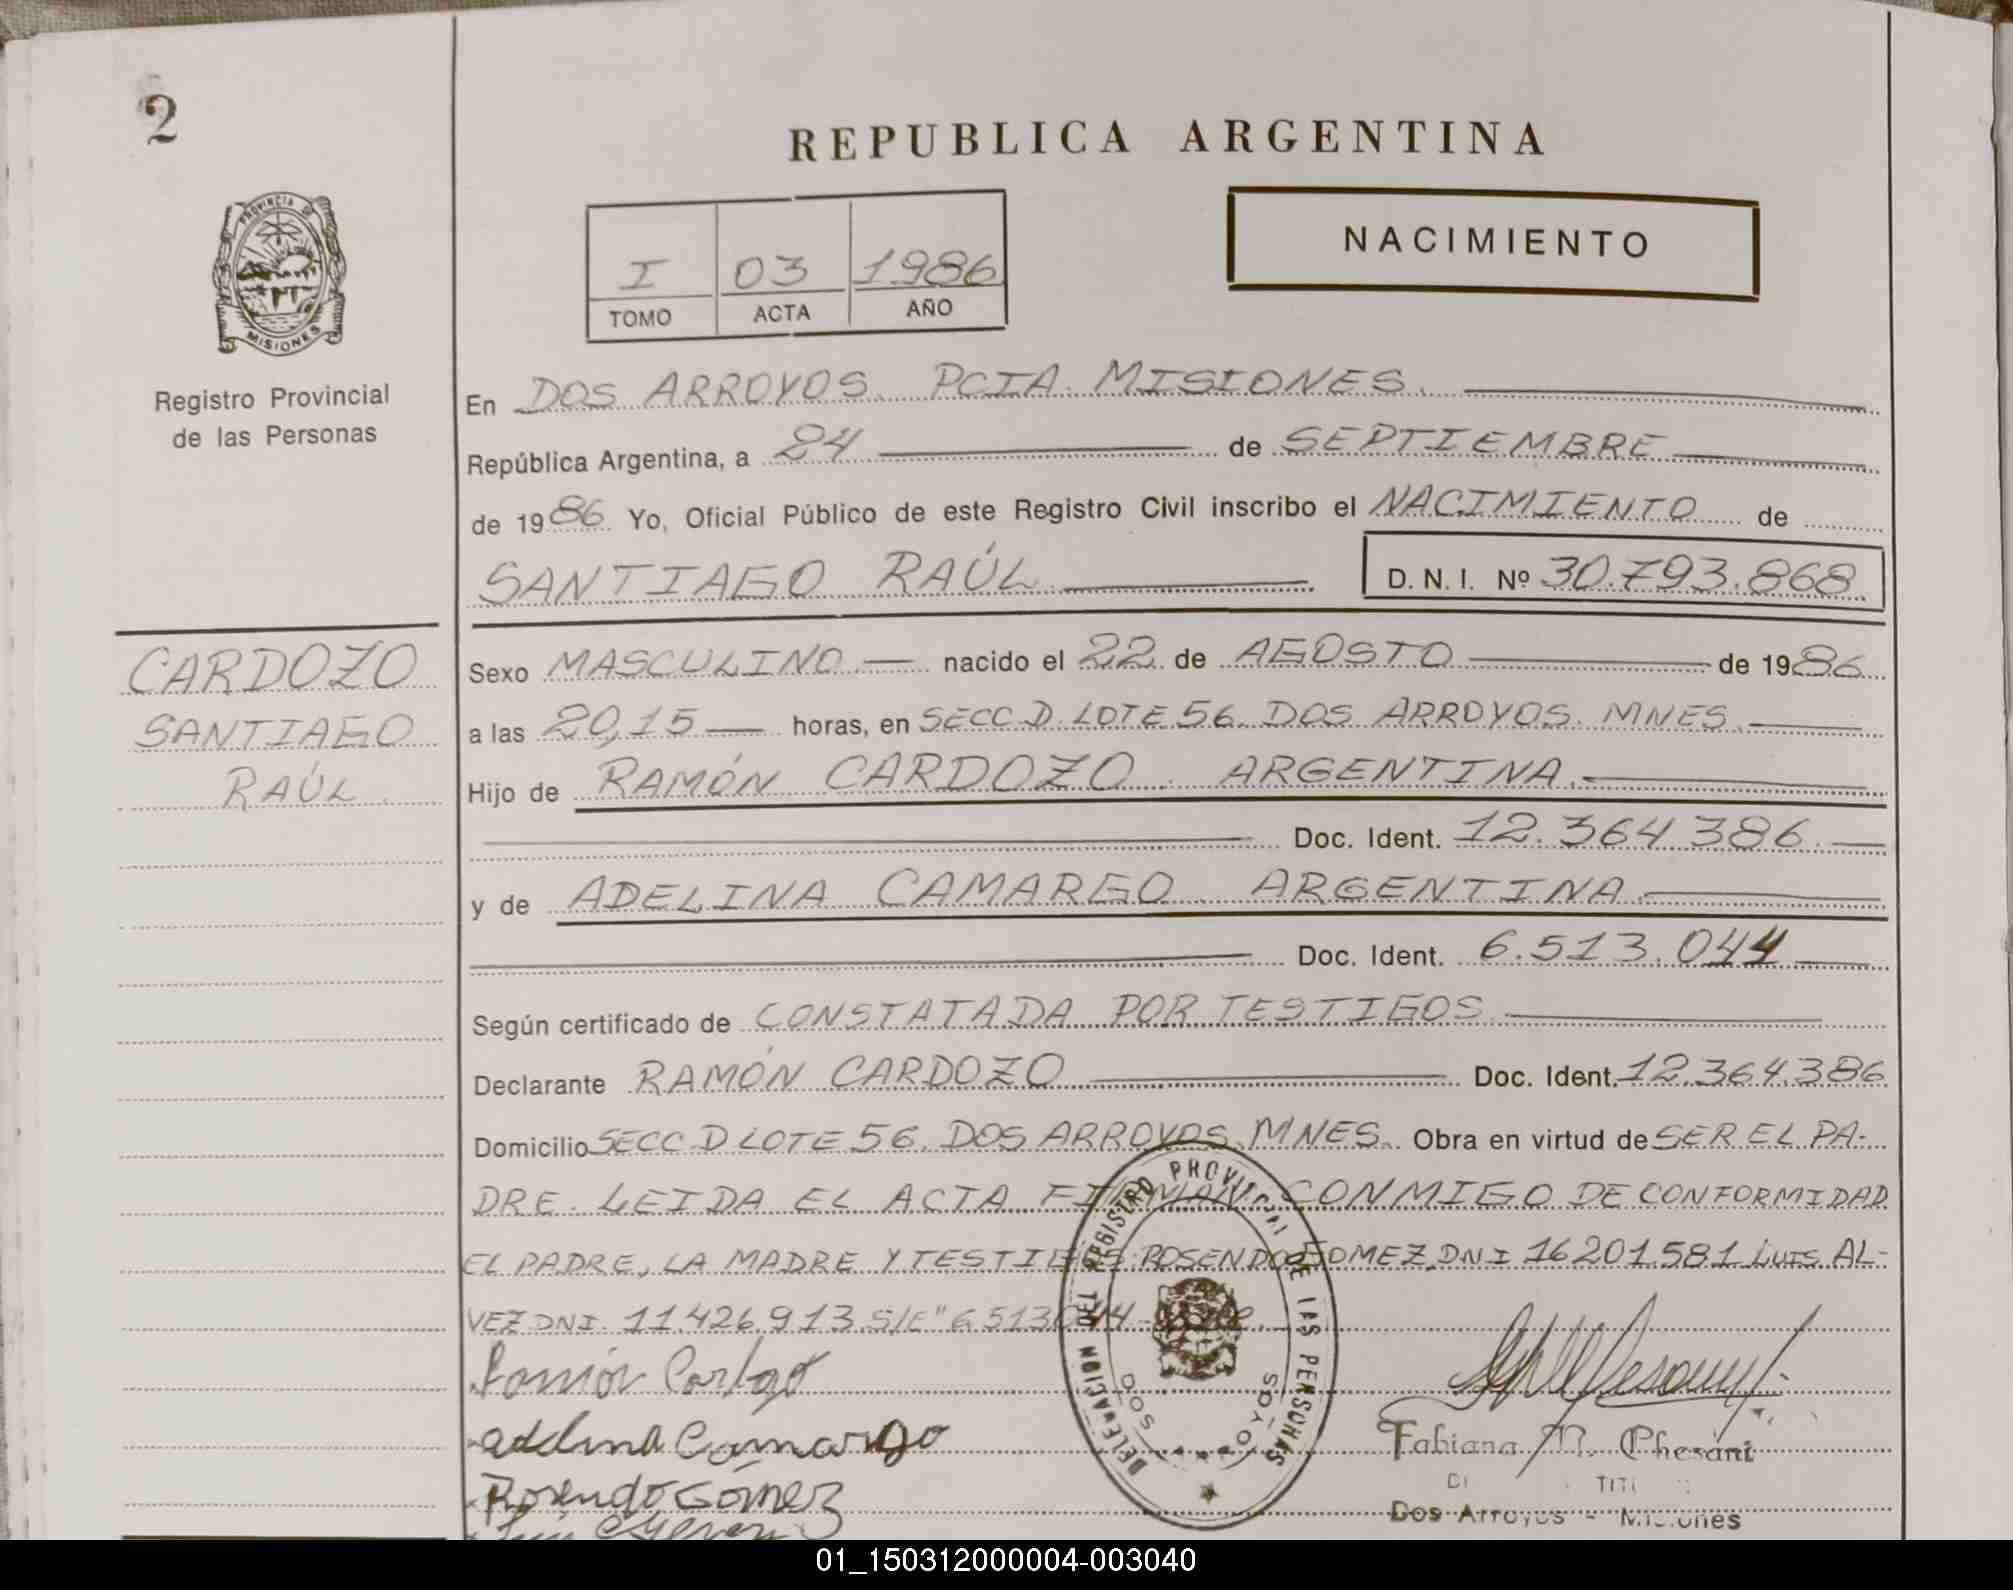 2
REPUBLICA ARGENTINA
PROVINCIA DE
MISIONES
Registro Provincial
de las Personas
I 03 1986
TOMO ACTA AÑO
NACIMIENTO
En DOS ARROYOS. PCIA. MISIONES.
República Argentina, a 24 de SEPTIEMBRE
de 1986 Yo, Oficial Público de este Registro Civil inscribo el NACIMIENTO de
SANTIAGO RAÚL D. N. I. Nº 30.793.868
CARDOZO
SANTIAGO
RAÚL
Sexo MASCULINO nacido el 22 de AGOSTO de 1986
a las 20,15 horas, en SECC D. LOTE 56. DOS ARROYOS. MNES.
Hijo de RAMÓN CARDOZO. ARGENTINA.
Doc. Ident. 12.364.386
y de ADELINA CAMARGO. ARGENTINA.
Doc. Ident. 6.513.044
Según certificado de CONSTATADA POR TESTIGOS
Declarante RAMÓN CARDOZO Doc. Ident. 12.364.386
Domicilio SECC D LOTE 56. DOS ARROYOS. MNES. Obra en virtud de SER EL PA-
DRE. LEIDA EL ACTA FIRMAN CONMIGO DE CONFORMIDAD
EL PADRE, LA MADRE Y TESTIGOS: ROSENDO GOMEZ DNI 16201.581 LUIS AL-
VEZ DNI. 11.426.913. S/E" 6.513044
Ramón Cardozo
Adelina Camargo
Rosendo Gómez
DELEGACION DEL REGISTRO PROVINCIAL DE LAS PERSONAS
DOS ARROYOS
Fabiana M. Chesani
Dos Arroyos - Misiones
01_150312000004-003040